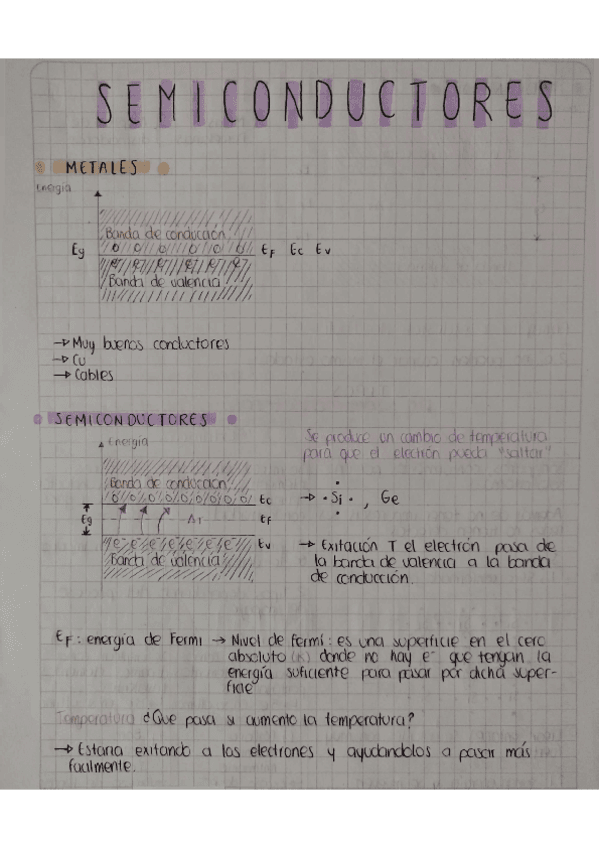 SEMICONDUCTORES
METALES
Energía
Banda de conducción
Eg
EF Ec Ev
Banda de valencia
→ Muy buenos conductores
→ Cu
→ Cables
SEMICONDUCTORES
Energía
Se produce un cambio de temperatura
para que el electrón pueda "saltar"
Banda de conducción
Ec
→ ·Si· , Ge
Eg
ΔT
EF
e⁻ e⁻ e⁻ e⁻ e⁻ e⁻ e⁻
Ev
Banda de valencia
→ Exitación T el electrón pasa de
la banda de valencia a la banda
de conducción.
EF: energía de Fermi → Nivel de fermi: es una superficie en el cero
absoluto (K) donde no hay e⁻ que tengan la
energía suficiente para pasar por dicha super-
ficie
Temperatura ¿Que pasa si aumento la temperatura?
→ Estaria exitando a los electrones y ayudandolos a pasar más
facilmente.